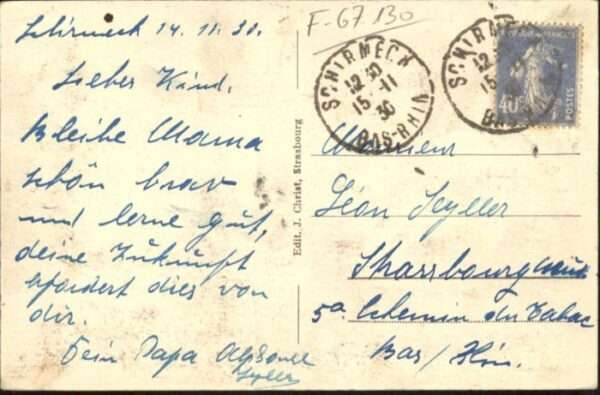 Schirmeck 14.11.30.
Lieber Kind.
Bleibe Mama
schön brav
und lerne gut,
deine Zukunft
erfordert dies von
dir.
Dein Papa Alphonse
Seyller
Edit. J. Christ, Strasbourg
F-67.130
SCHIRMECK
12 30
15 -11
30
BAS-RHIN
SCHIRMECK
12
15
BAS
40c
POSTES
Monsieur
Léon Seyller
Strassbourg
5a Chemin du Tabac
Bas/Rhin.